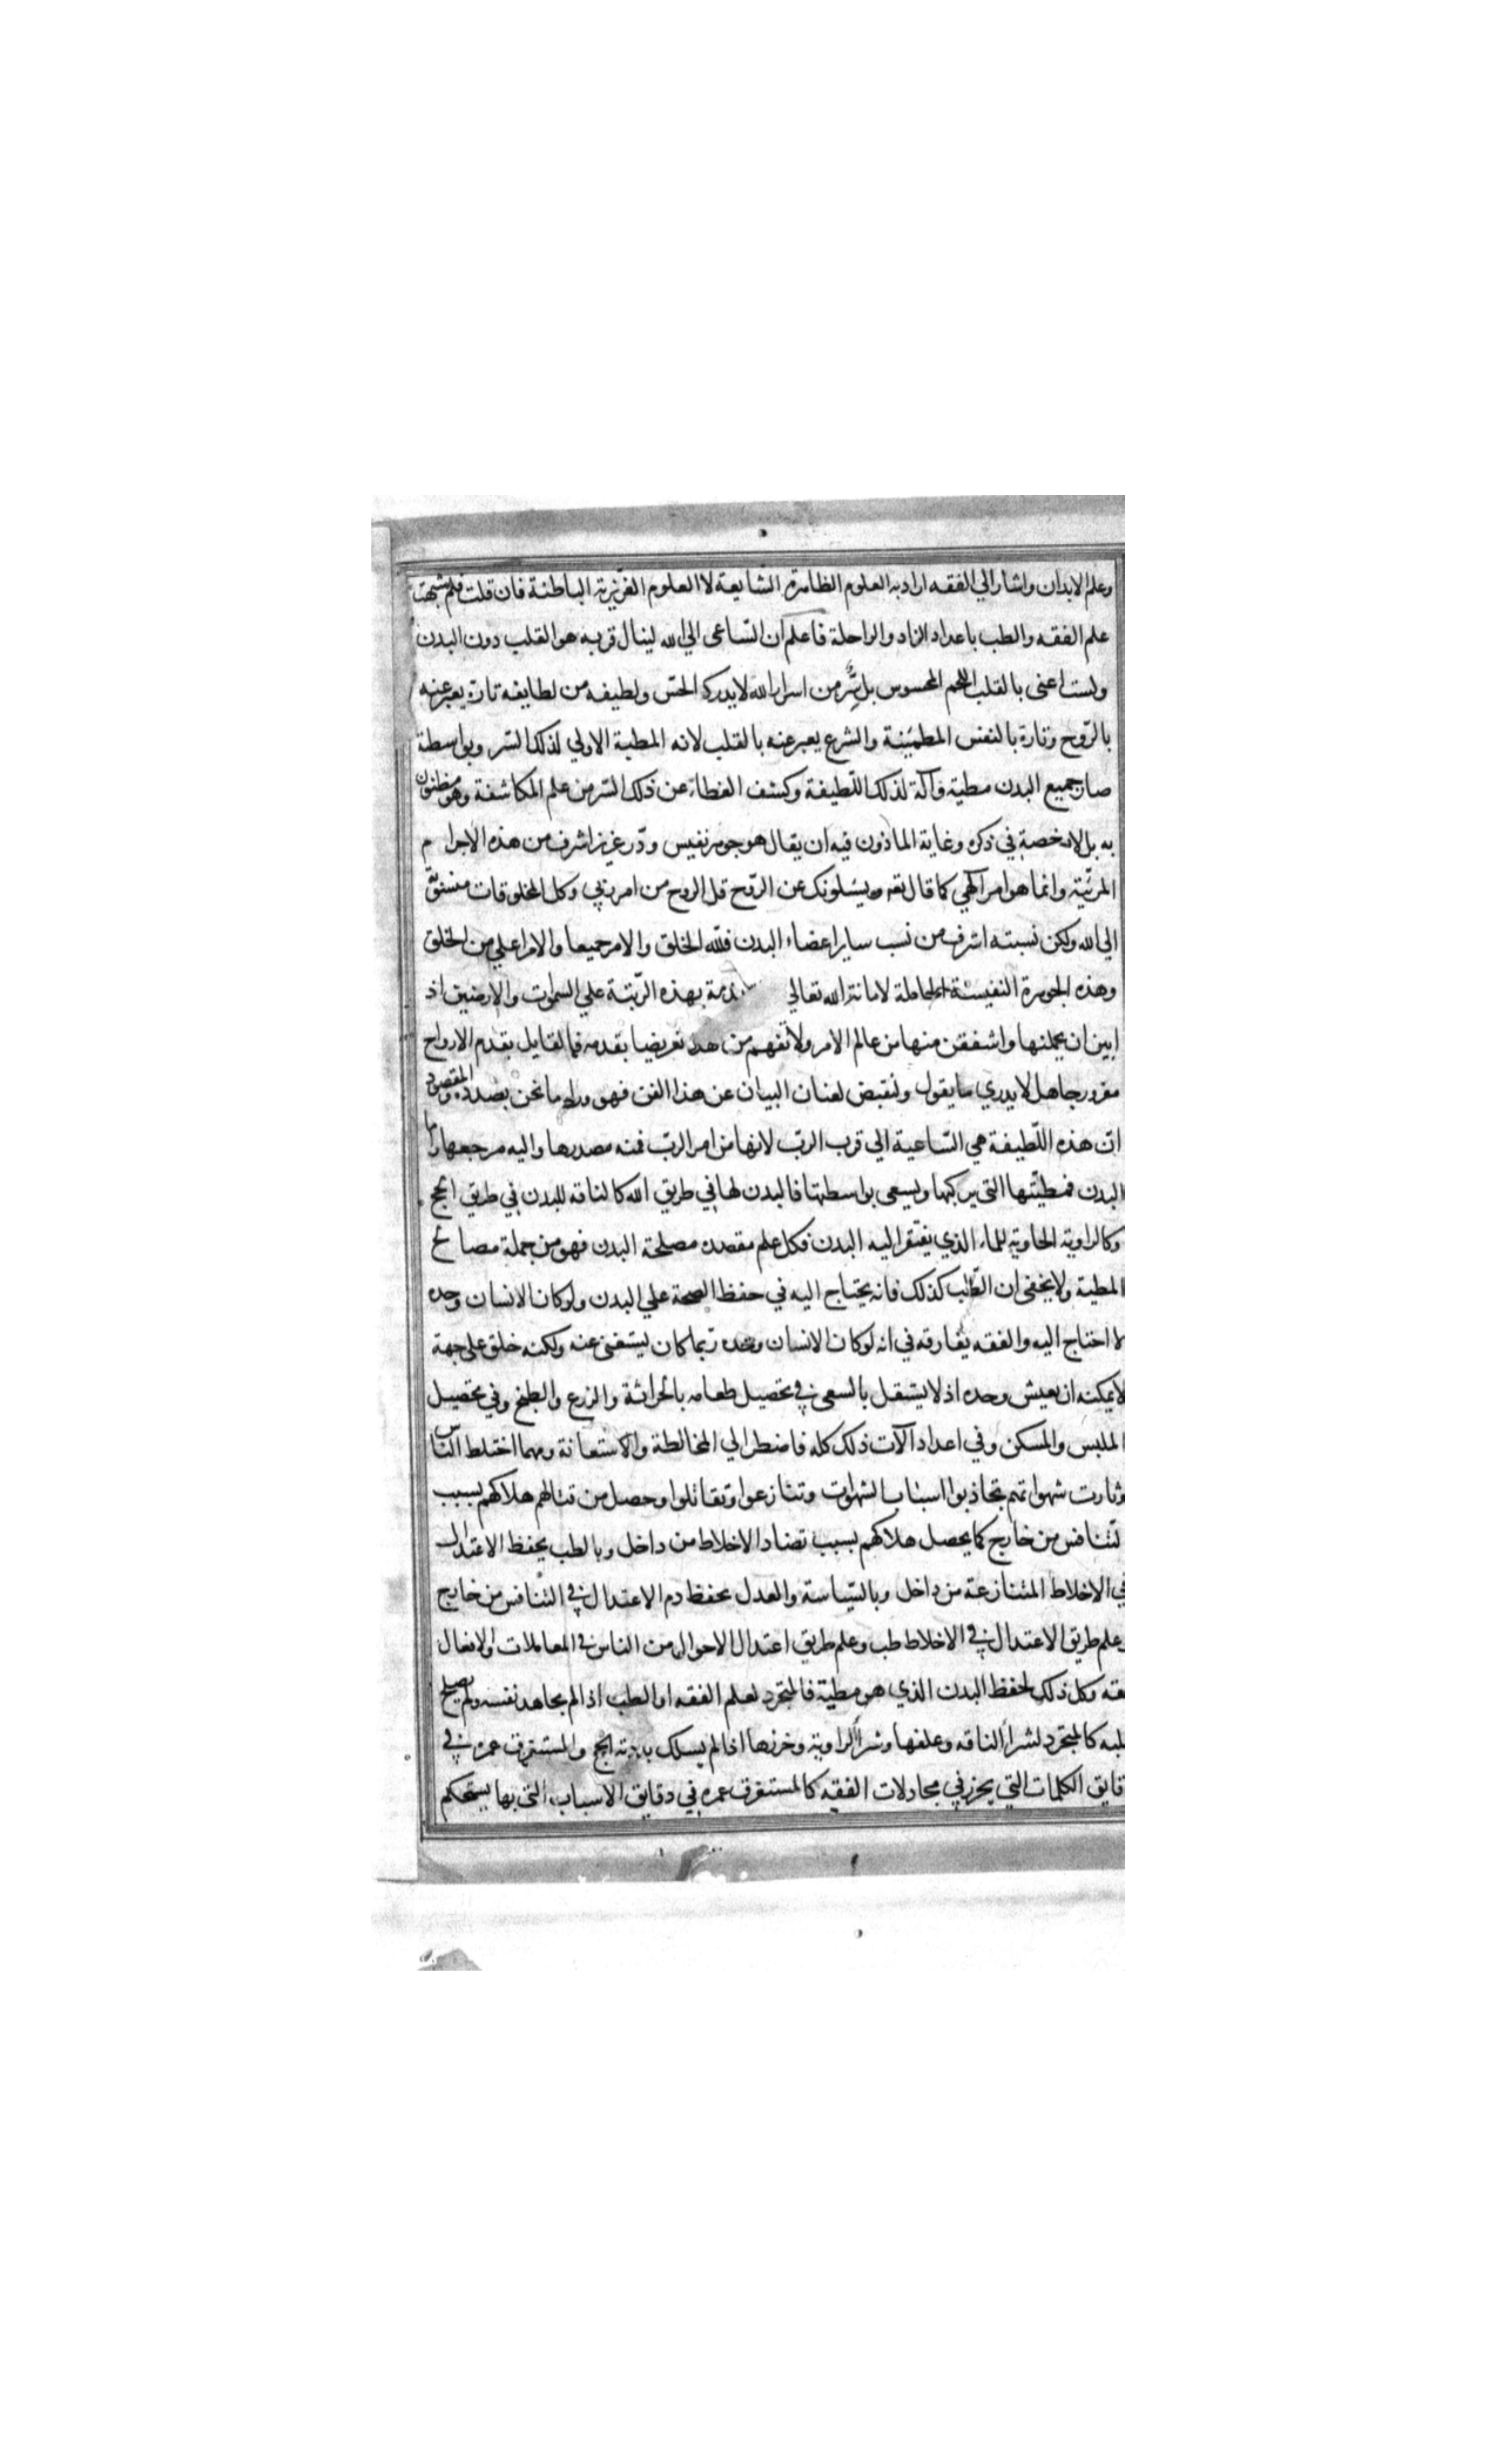 وعلم الابدان واشار الي الفقه اراد به العلوم الظاهرة الشايعة لا العلوم العزيزة الباطنة فان قلت فلم شبهت
علم الفقه والطب باعداد الزاد والراحلة فاعلم ان الساعى الي الله لينال قربه هو القلب دون البدن
ولست اعنى بالقلب اللحم المحسوس بل سر من اسرار الله لا يدركه الحس ولطيفه من لطايفه تارة يعبر عنه
بالروح وتارة بالنفس المطمينة والشرع يعبر عنه بالقلب لانه المطية الاولي لذلك السر وبواسطة
صار جميع البدن مطية وآلة لذلك اللطيفة وكشف الغطاء عن ذلك السر من علم المكاشفة وهو مظنون
به بل لا رخصة في ذكره وغاية الماذون فيه ان يقال هو جوهر نفيس ودر عزيز اشرف من هذه الاجرام
المرئية وانما هو امر آلهي كما قال تعه ويسئلونك عن الروح قل الروح من امر ربي وكل المخلوقات
الي الله ولكن نسبته اشرف من نسب ساير اعضاء البدن فلله الخلق والامر جميعا والامر اعلي من الخلق
وهذه الجوهرة النفيسة الحاملة لامانة الله تعالي بهذه الرتبة علي السموات والارضين اذ
ابين ان يحملنها واشفقن منها من عالم الامر ولا تفهم من هذ تعريضا بقدمه فالقايل بقدم الارواح
مغرور جاهل لا يدري ما يقول ولنقبض لعنان البيان عن هذا الفن فهو وراء ما نحن بصدده والمقصود
ان هذه اللطيفة هي الساعية الي قرب الرب لانها من امر الرب فمنه مصدرها واليه مرجعها واما
البدن فمطيتها التى يركبها ويسعى بواسطتها فالبدن لها في طريق الله كالناقه للبدن في طريق الحج
وكالراوية الحاوية للماء الذي يفتقر اليه البدن فكل علم مقصده مصلحة البدن فهو من جملة مصالح
المطية ولا يخفى ان الطب كذلك فانه يحتاج اليه في حفظ الصحة علي البدن ولو كان الانسان وحده
لا احتاج اليه والفقه يفارقه في انه لو كان الانسان وحده ربما كان يستغنى عنه ولكنه خلق على جهة
لا يمكنه ان يعيش وحده اذ لا يستقل بالسعى في تحصيل طعامه بالحراثة والزرع والطبخ وفي تحصيل
الملبس والمسكن وفي اعداد آلات ذلك كله فاضطر الي المخالطة والاستعانة ومهما اختلط الناس
وثارت شهواتهم تجاذبوا اسباب الشهوات وتنازعوا وتقاتلوا وحصل من قتالهم هلاكهم بسبب
لتنافس من خارج كما يحصل هلاكهم بسبب تضاد الاخلاط من داخل وبالطب يحفظ الاعتدال
في الاخلاط المتنازعة من داخل وبالسياسة والعدل يحفظ دم الاعتدال في التنافس من خارج
وعلم طريق الاعتدال في الاخلاط طب وعلم طريق اعتدال الاحوال من الناس في المعاملات والافعال
فقه وكل ذلك لحفظ البدن الذي هو مطية فالمتجرد لعلم الفقه او الطب اذا لم يجاهد نفسه ولم يصلح
قلبه كالمتجرد لشراء الناقه وعلفها وشراء الراوية وخرزها اذا لم يسلك بادية الحج والمستغرق عمره في
دقايق الكلمات التي يحرز في مجادلات الفقه كالمستغرق عمره في دقايق الاسباب التى بها يستحكم